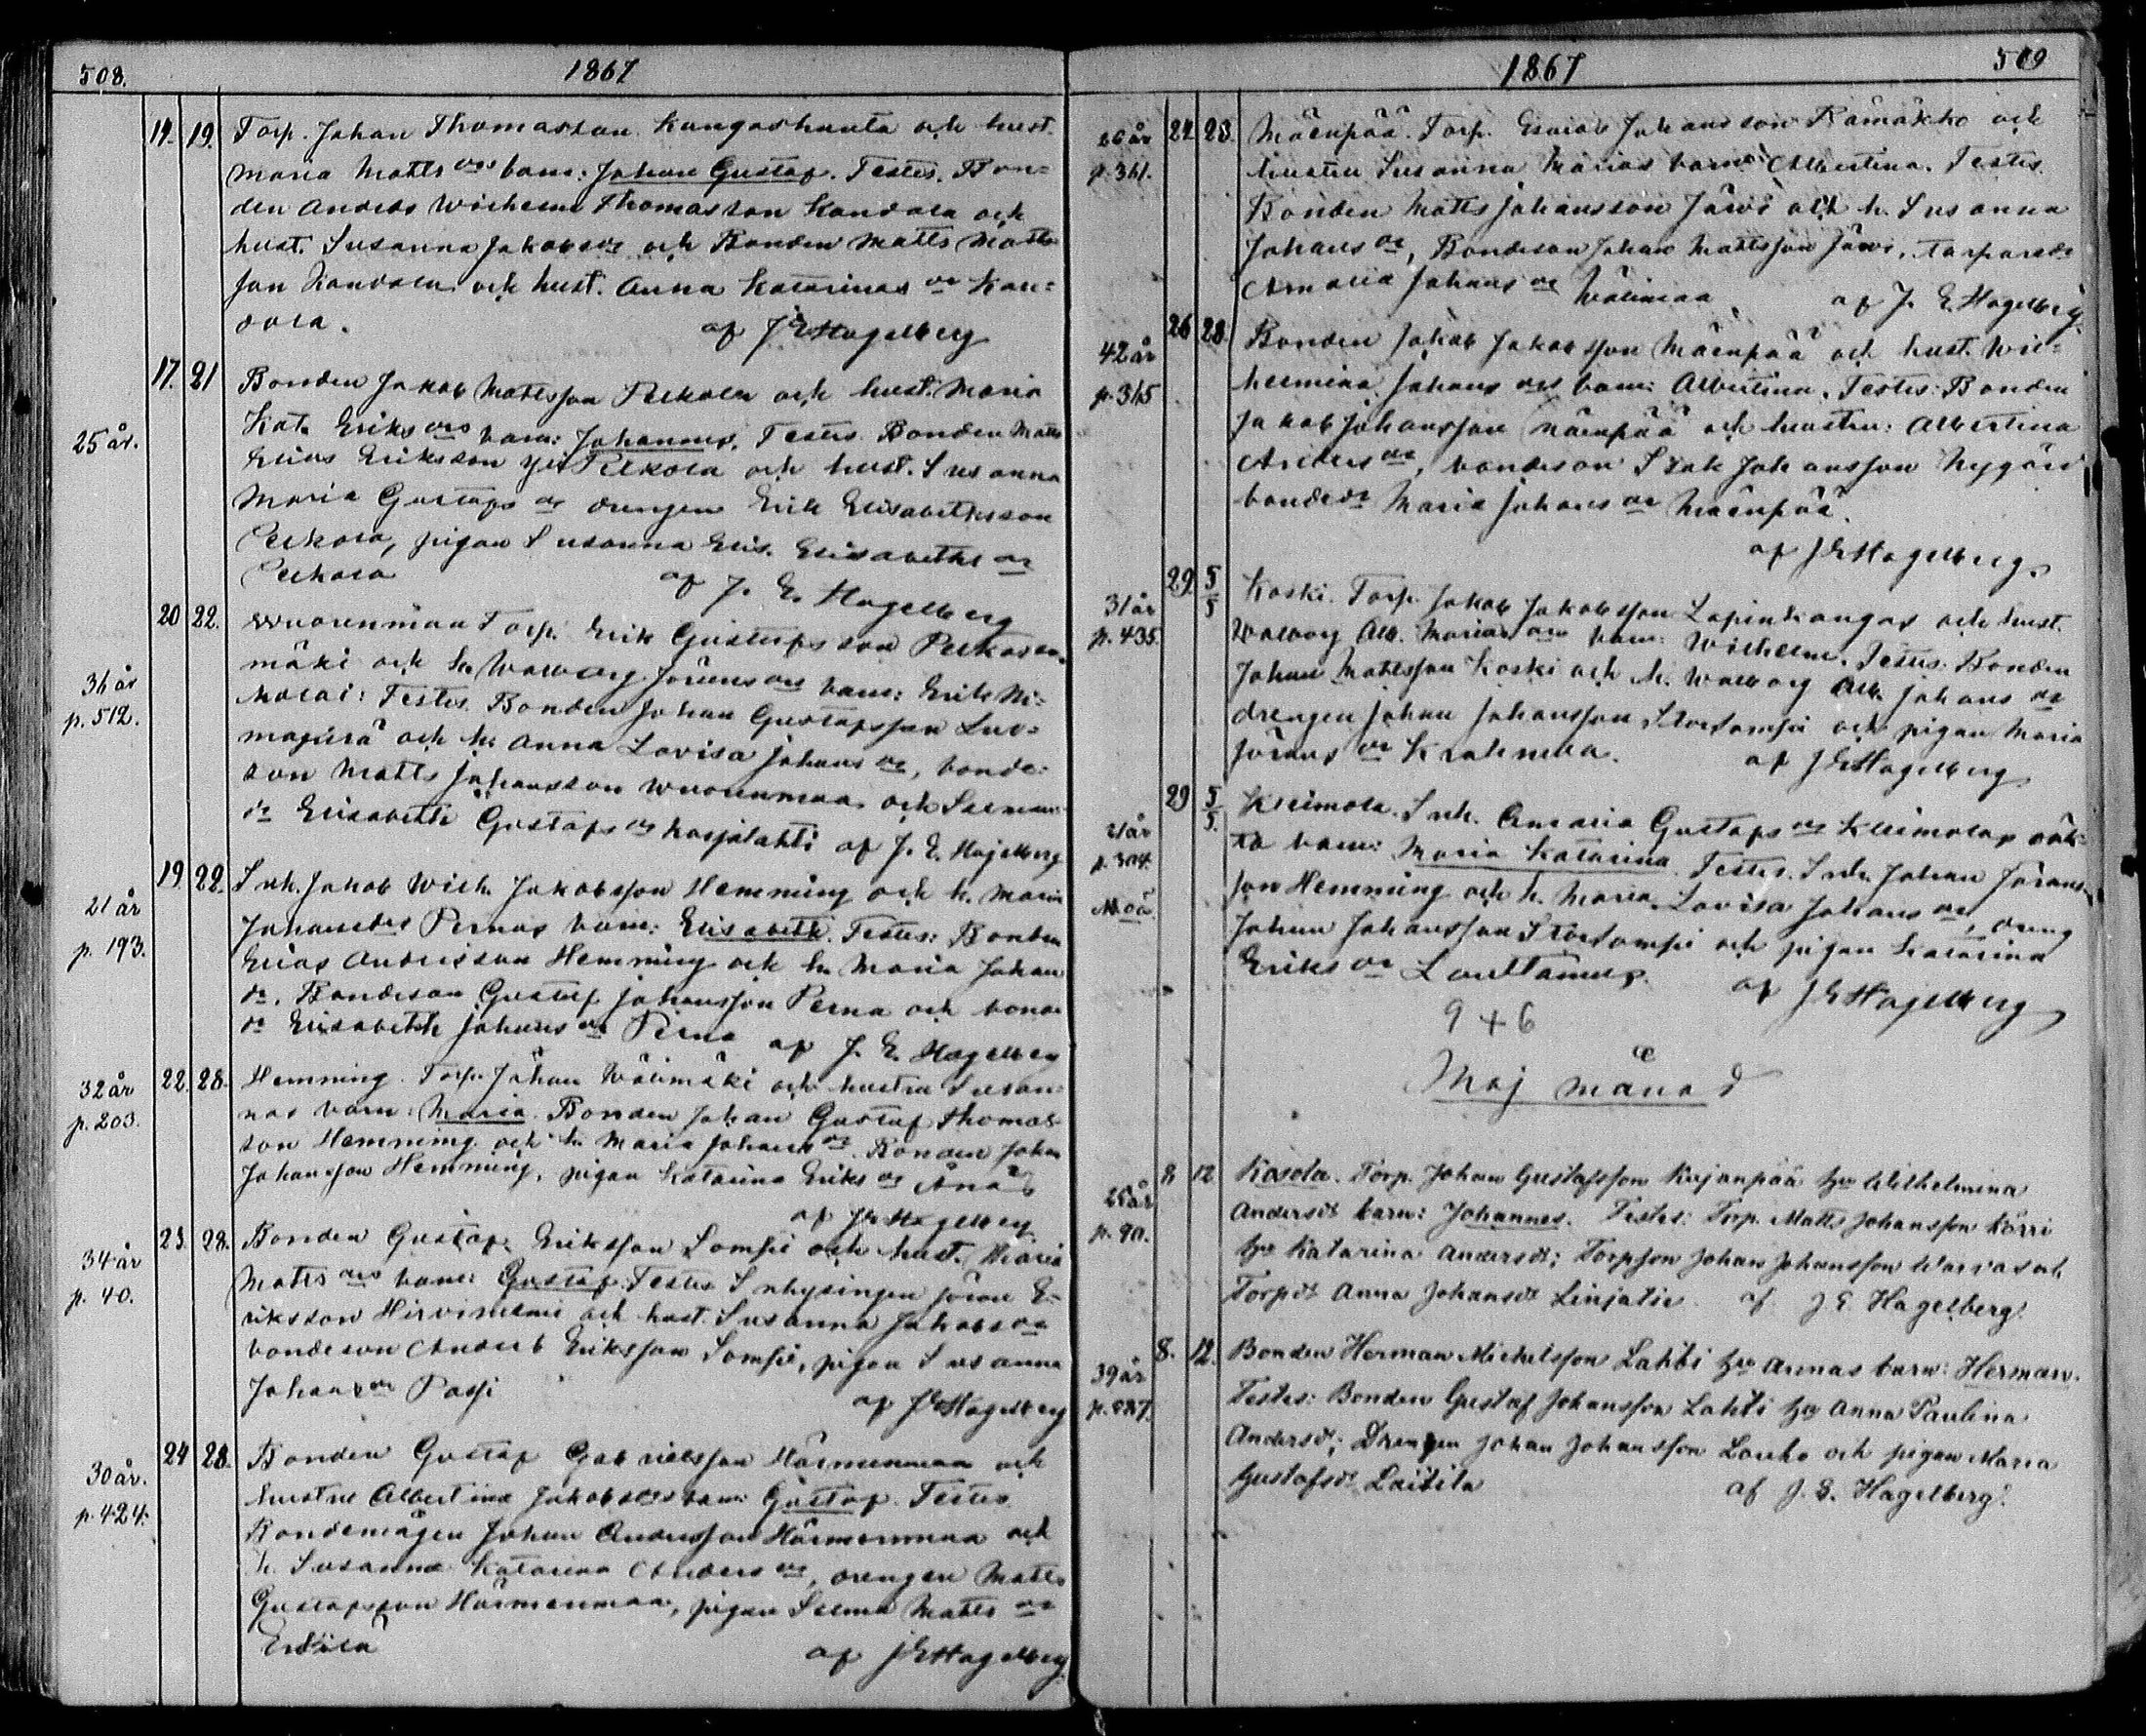 508. 1867
14. 19. Torp. Johan Thomasson Kangashauta och hust.
Maria Matts drs barn: Johan Gustaf. Testes. Bon=
den Anders Wilhelm Thomasson Kandola och
hust. Susanna Jakobs dr och Bonden Matts Matts
son Kandola och hust. Anna Katarinas dr Kan=
dola. af J E Hagelberg
17. 21 Bonden Jakob Mattsson Pelkola och hust. Maria
25 år. Kat. Eriks drs barn: Johannes. Testes Bonden Matts
Elias Eriksson Pelkola och hust. Susanna
Maria Gustafs dr drengen Erik Elisabethsson
Pelkola, pigan Susanna Elis. Elisabeths dr
Pelkola af J. E. Hagelberg
20 22. Wuorenmaa Torp. Erik Gustafsson Pelkosen=
36 år mäki och h. Walborg Jörans drs barn: Erik Ni=
p. 512. kolai: Testes. Bonden Johan Gustafsson Luo=
och h. Anna Lovisa Johans dr, bonde=
son Matts Johansson Wuorenmaa och
dr Elisabeth Gustafs dr Karjalahti af J. E. Hagelberg
19 22. Inh. Jakob Wilh. Jakobsson Hemming och h. Maria
21 år Johansdrs Pernas barn: Elisabeth. Testes: Bonden
p. 193. Elias Andersson Hemming och h. Maria Johans
dr. Bondeson Gustaf Johansson Perna och bonde
dr Elisabeth Johans dr Perna af J. E. Hagelberg
22. 28. Hemming. Torp. Johan Välimäki och hustru Susan=
32 år nas barn: Maria. Bonden Johan Gustaf Thomas=
p. 203. son Hemming och h. Maria Johans dr Bonden Johan
Johansson Hemming, pigan Katarina Eriks dr
af J E Hagelberg
23. 28. Bonden Gustaf Eriksson Sompi och hust. Maria
34 år Matts drs barn: Gustaf. Testes Inhysingen Jöran E=
p. 40. riksson Hirviniemi och hust. Susanna Jakobs dr
bondeson Anders Eriksson Sompi, pigan Susanna
Johans dr Passi af J E Hagelberg
24 28. Bonden Gustaf Gabrielsson Härmenmaa och
30 år. hustru Albertina Jakobs drs barn: Gustaf. Testes
p. 424. Bondemågen Johan Andersson Härmenmaa och
h. Susanna Katarina Anders dr, drengen Matts
Gustafsson Härmenmaa, pigan Selma Matts dr
Erkilä af J E Hagelberg
1867 509
26 år 22 23. Mäenpää. Torp. Esaias Johansson Rämäkkö och
p. 361. hustru Susanna Marias barn: Albertina. Testes.
Bonden Matts Johansson Järvi och h. Susanna
Johans dr, Bondeson Johan Mattsson Järvi, torparedr
Amalia Johans dr Välimaa af J. E. Hagelberg
26 28. Bonden Jakob Jakobsson Mäenpää och hust. Wil=
42 år helmina Johans drs barn: Albertina. Testes: Bonden
p. 365 Jakob Johansson Mäenpää och hustru: Albertina
Anders dr, bondeson Isak Johansson Nygård
bondedr Maria Johans dr Mäenpää.
af J E Hagelberg.
29. 5/5 Koski. Torp. Jakob Jakobsson Lapinkangas och hust.
31 år Walborg Alb. Marias drs barn: Wilhelm. Testes. Bonden
p. 435. Johan Mattsson Koski och h. Walborg Alb. Johans dr
drengen Johan Johansson Storsompi och pigan Maria
Jörans dr Krakneva. af J E Hagelberg
29 5/5. Kleimola. Inh. Amalia Gustafs dr Kleimolas oäk=
21 år ta barn: Maria Katarina. Testes. Inh. Johan Jörans=
p. 304. son Hemming och h. Maria Lovisa Johans dr, dreng
Moä Johan Johansson Storsompi och pigan Katarina
Eriks dr Luoltamus. af J E Hagelberg
9 + 6
Maj månad
8 12 Kasola. Torp. Johan Gustafsson Kujanpää hu Wilhelmina
25 år Andersdr barn: Johannes. Testes: Torp. Matts Johansson Körri
p. 90. hu Katarina Andersdr; Torpson Johan Johansson
Torpdr Anna Johansdr Linjatie. af J. E. Hagelberg.
8. 12. Bonden Herman Michelsson Lahti hu Annas barn: Herman.
39 år Testes: Bonden Gustaf Johansson Lahti hu Anna Paulina
Andersdr; Drengen Johan Johansson Louko och pigan Maria
Gustafsdr Laitila af J. E. Hagelberg.